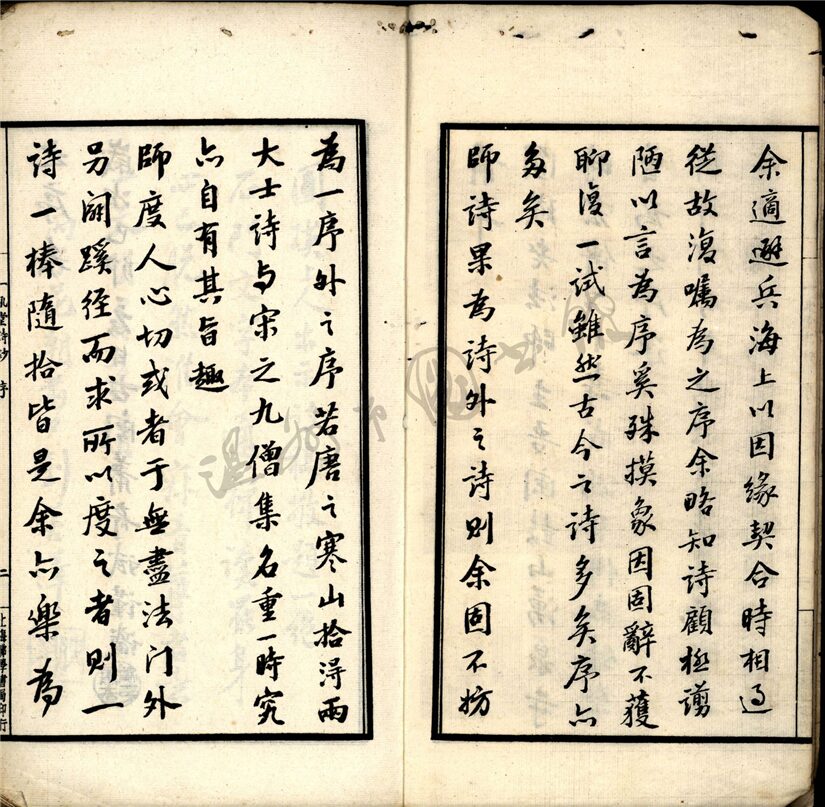 余適避兵海上以因緣契合時相過
從故復囑為之序余略知詩顧極謭
陋以言為序奚殊摸象因固辭不獲
聊復一試雖然古今之詩多矣序亦
多矣
師詩果為詩外之詩則余固不妨
為一序外之序若唐之寒山拾得兩
大士詩与宋之九僧集名重一時究
亦自有其旨趣
師度人心切或者于無盡法门外
另闢蹊径而求所以度之者則一
詩一棒隨拾皆是余亦樂為
詩鈔 序
二
上海佛學書局印行
溫州市圖